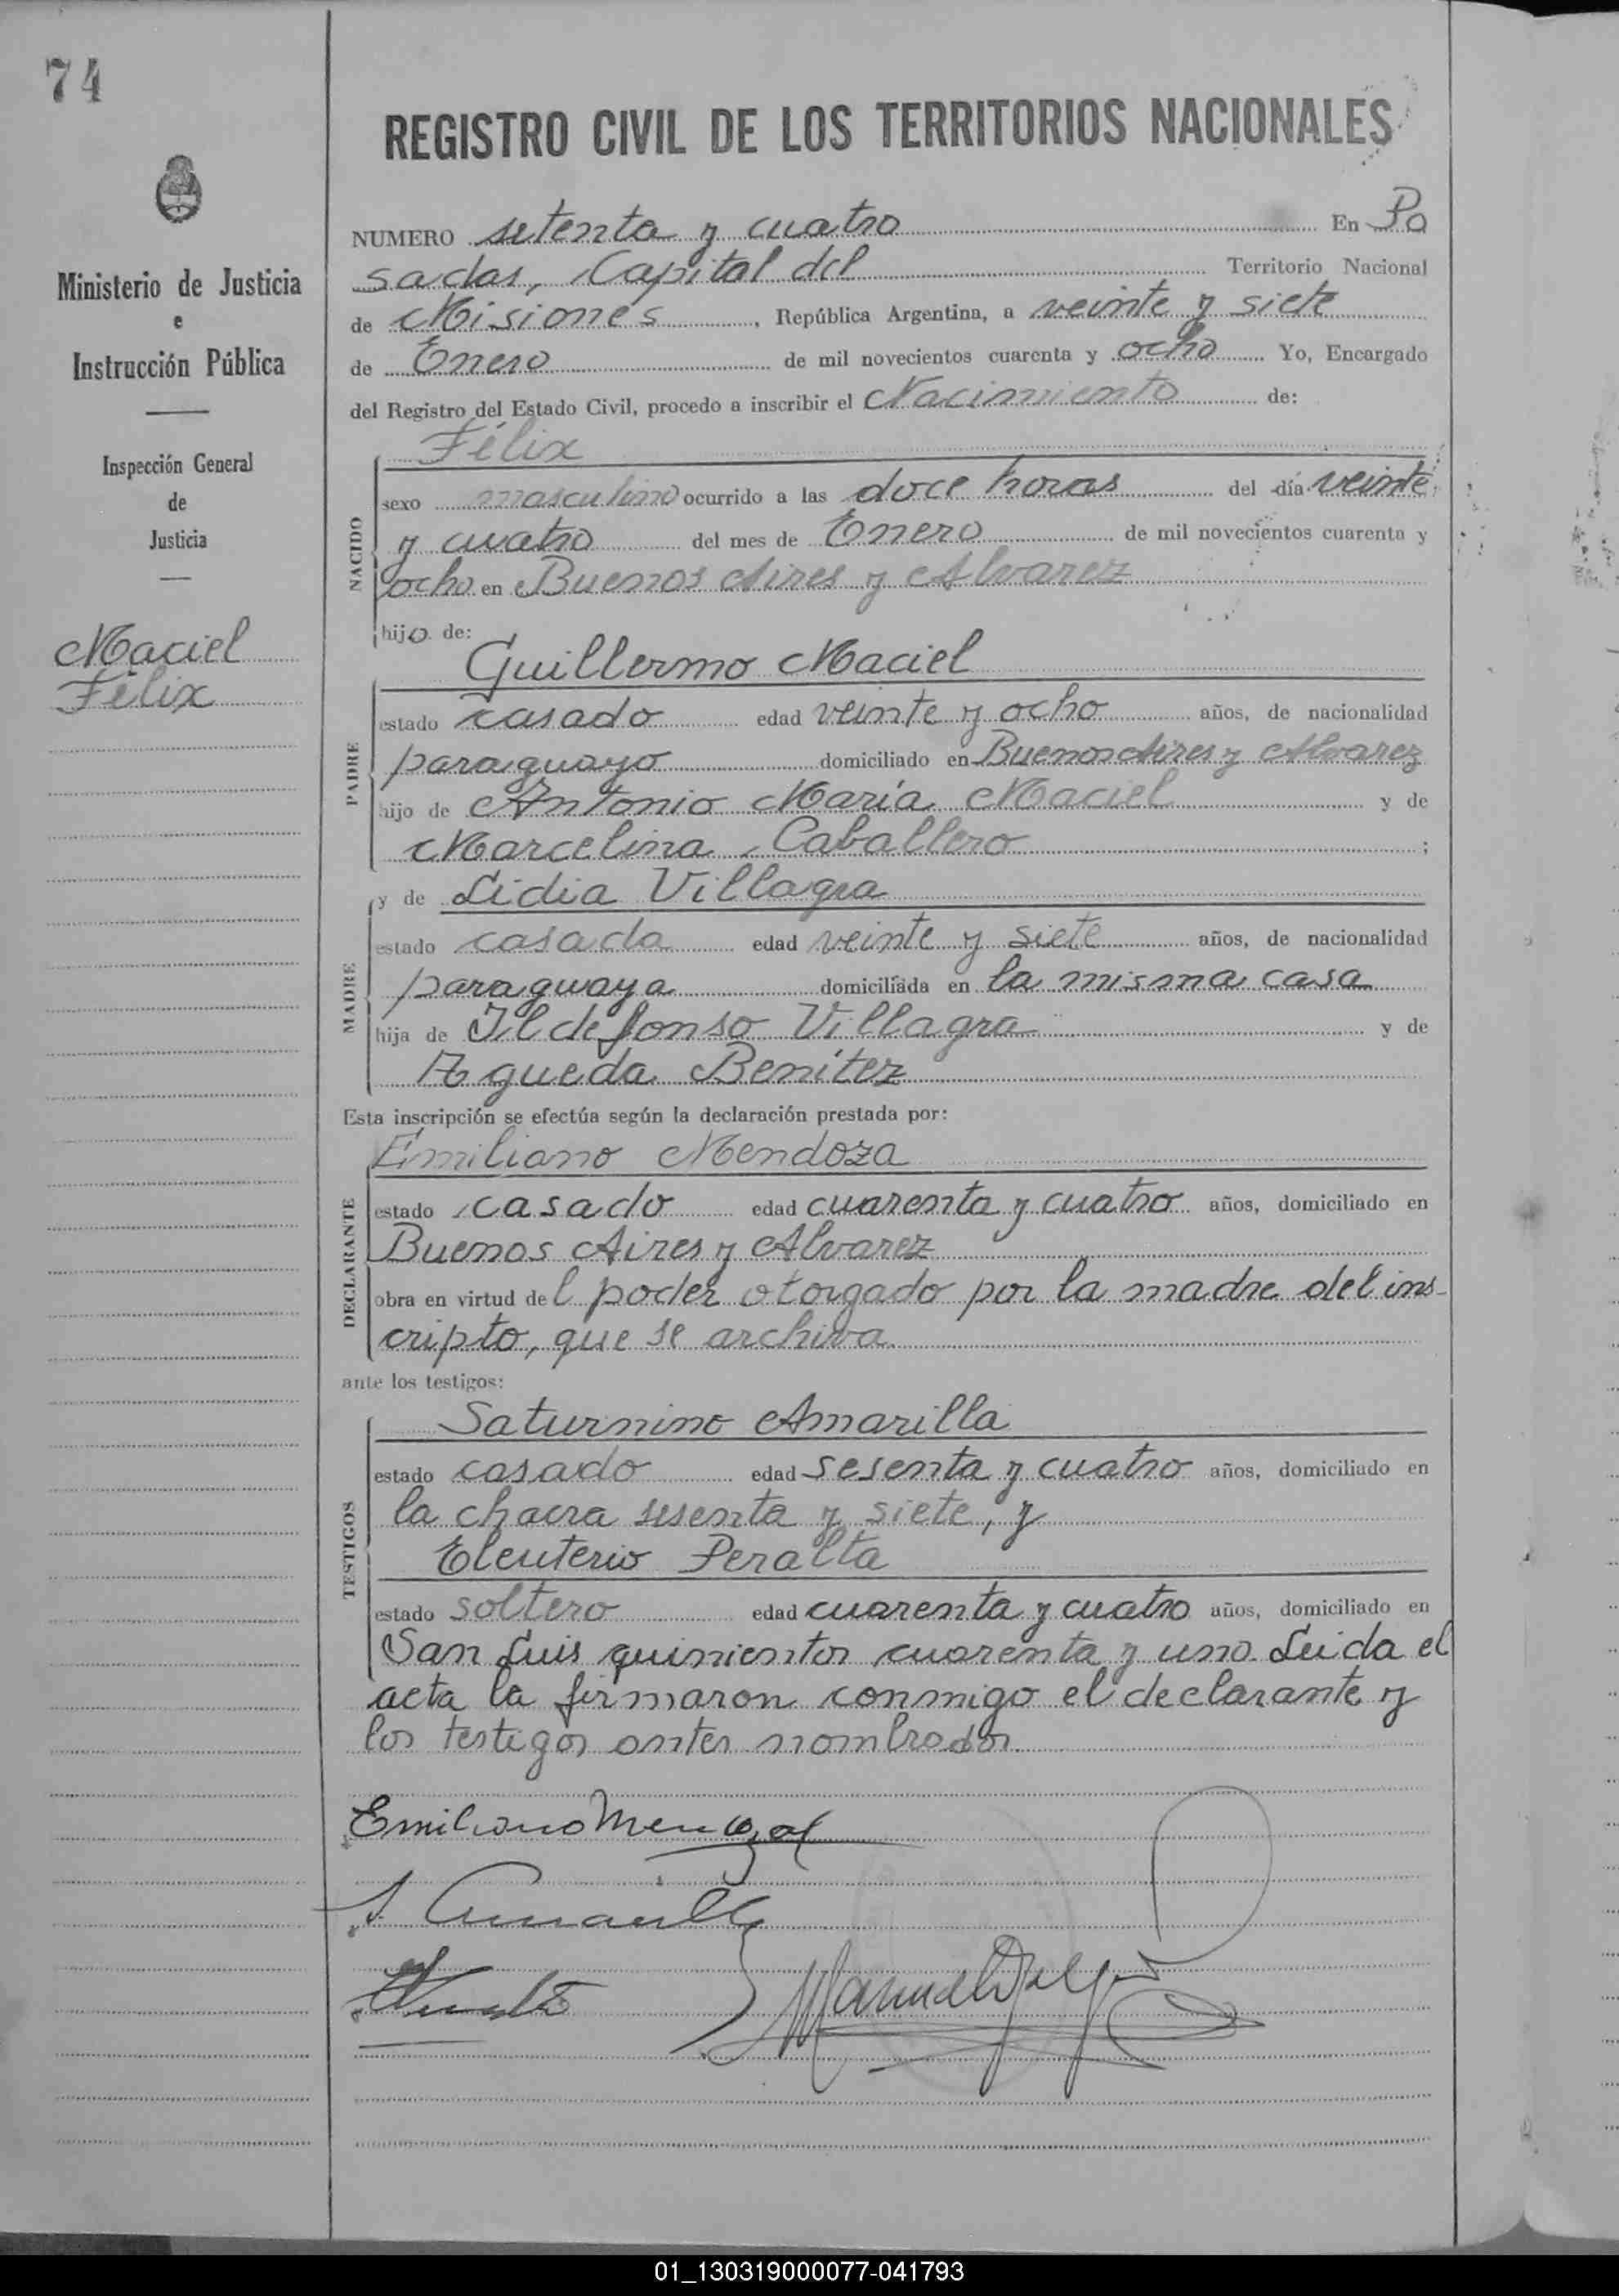 74
REGISTRO CIVIL DE LOS TERRITORIOS NACIONALES
Ministerio de Justicia
e
Instrucción Pública
Inspección General
de
Justicia
Maciel
Félix
NUMERO setenta y cuatro En Po
sadas, Capital del Territorio Nacional
de Misiones, República Argentina, a veinte y siete
de Enero de mil novecientos cuarenta y ocho Yo, Encargado
del Registro del Estado Civil, procedo a inscribir el Nacimiento de:
NACIDO
Félix
sexo masculino ocurrido a las doce horas del día veinte
y cuatro del mes de Enero de mil novecientos cuarenta y
ocho en Buenos Aires y Alvarez
hijo de:
PADRE
Guillermo Maciel
estado casado edad veinte y ocho años, de nacionalidad
paraguayo domiciliado en Buenos Aires y Alvarez
hijo de Antonio María Maciel y de
Marcelina Caballero;
MADRE
y de Lidia Villagra
estado casada edad veinte y siete años, de nacionalidad
paraguaya domiciliada en la misma casa
hija de Ildefonso Villagra y de
Agueda Benítez
Esta inscripción se efectúa según la declaración prestada por:
DECLARANTE
Emiliano Mendoza
estado casado edad cuarenta y cuatro años, domiciliado en
Buenos Aires y Alvarez
obra en virtud del poder otorgado por la madre del ins-
cripto, que se archiva
ante los testigos:
TESTIGOS
Saturnino Amarilla
estado casado edad sesenta y cuatro años, domiciliado en
la chacra sesenta y siete, y
Eleuterio Peralta
estado soltero edad cuarenta y cuatro años, domiciliado en
San Luis quinientos cuarenta y uno. Leida el
acta la firmaron conmigo el declarante y
los testigos antes nombrados.
Emiliano Mendoza
S. Amarilla
01_130319000077-041793